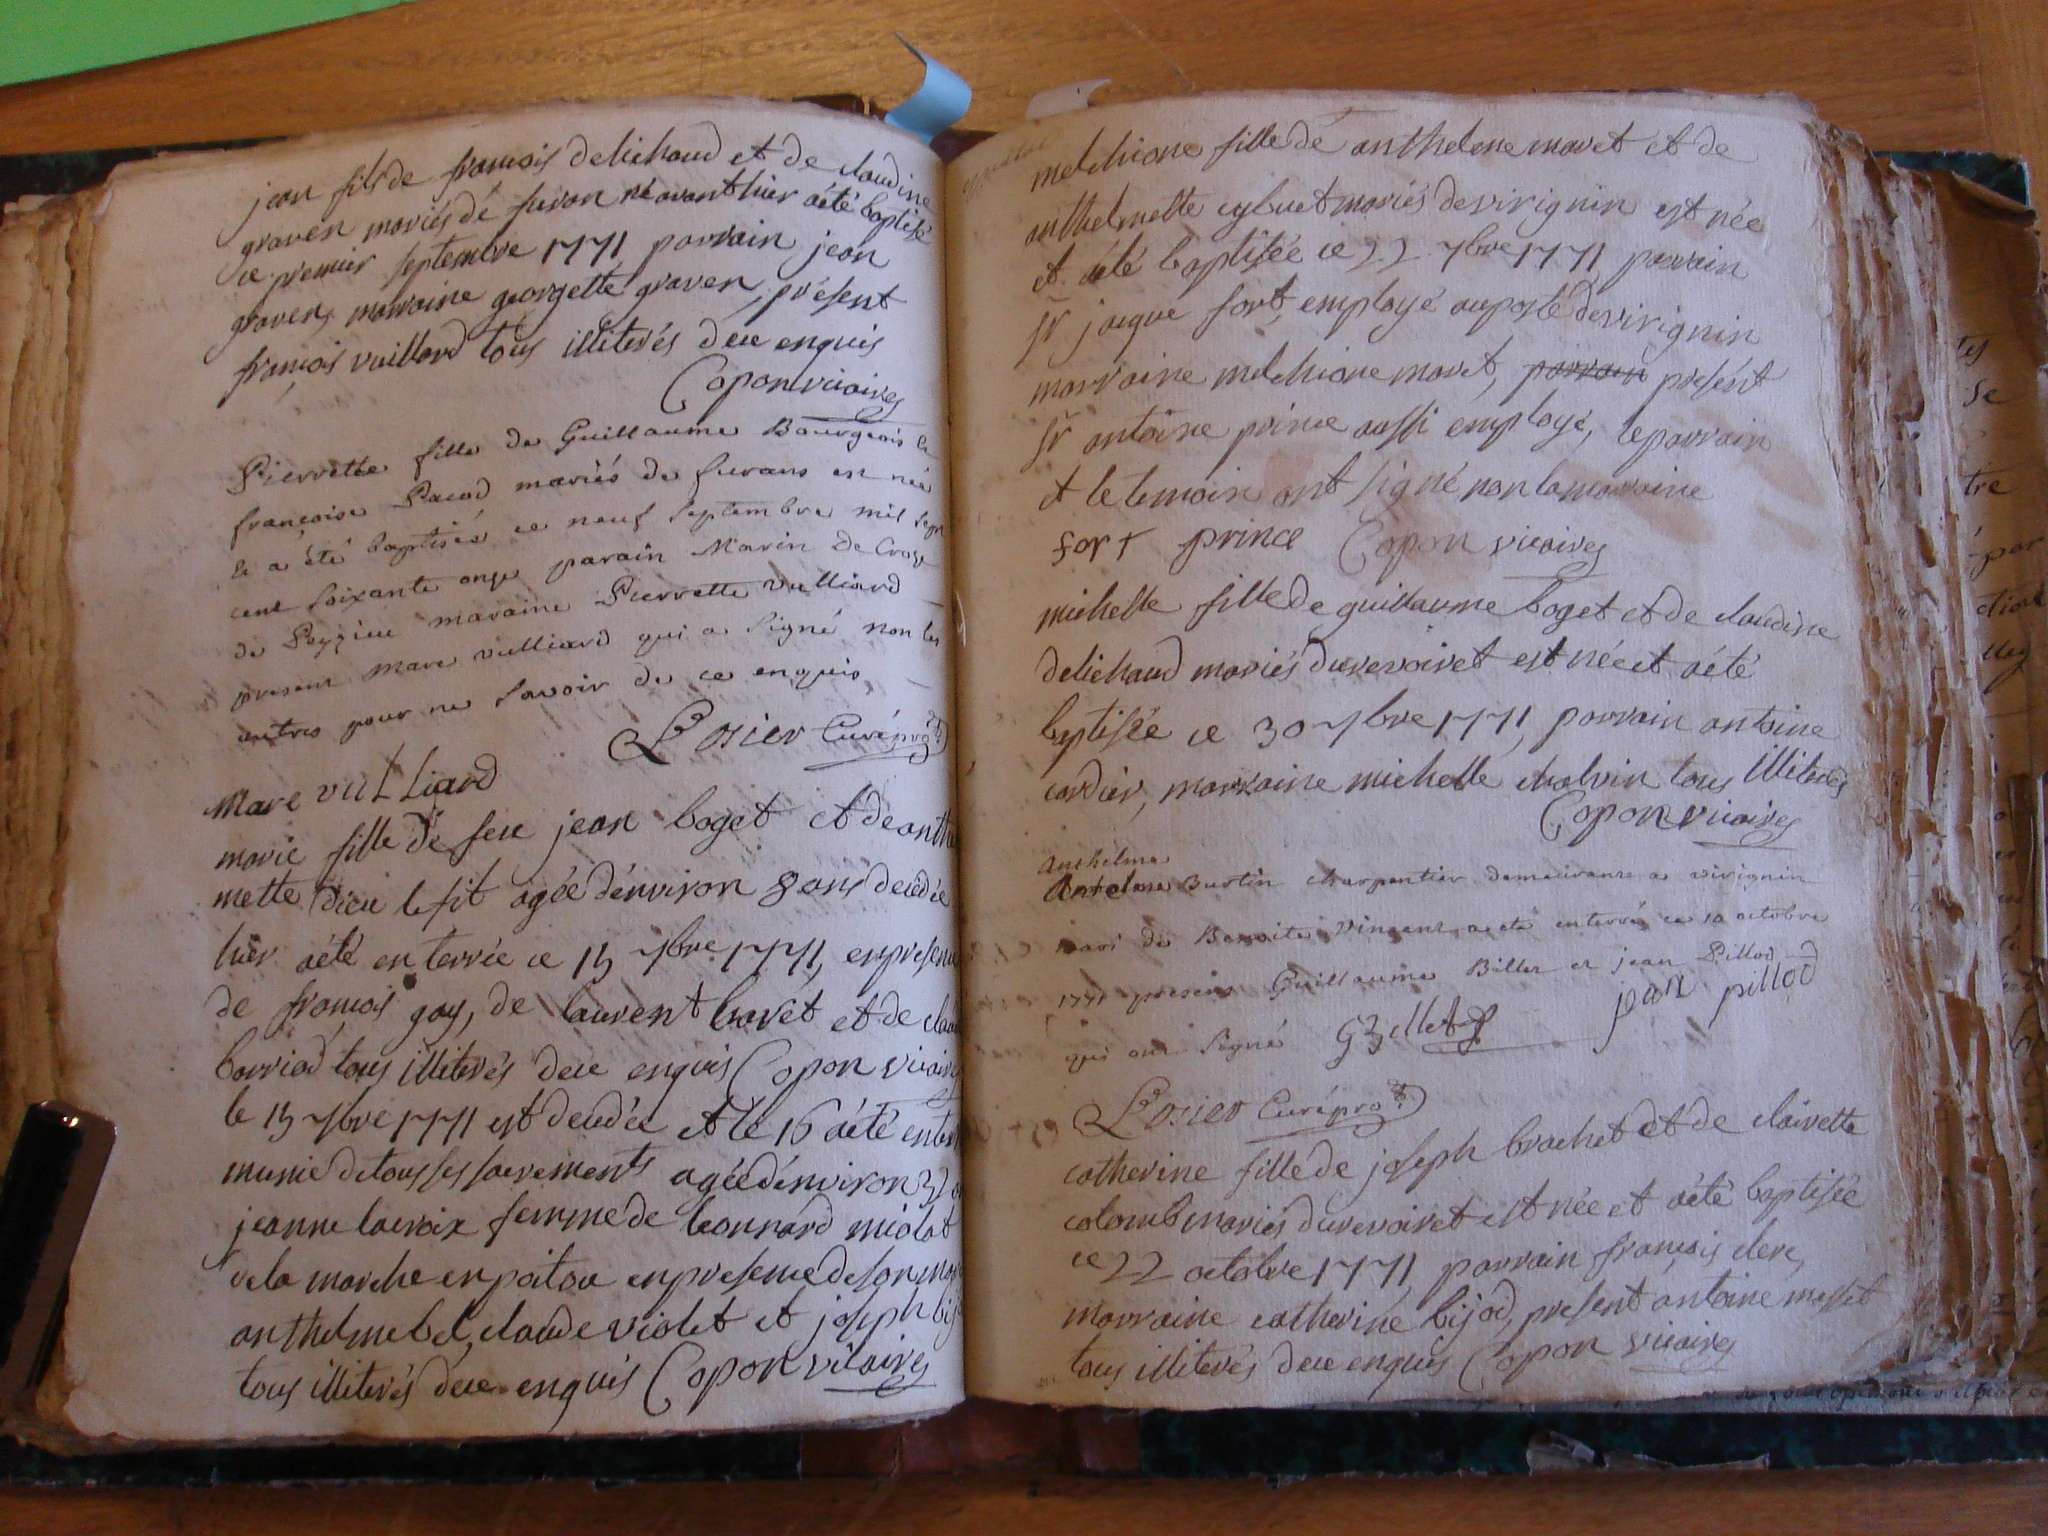 jean fils de francois delichaud et de claudine
graven mariés de furan né avant hier a été baptisé
ce premier septembre 1771 parrain jean
graven, marraine georgette graven, présent
francois vuillard tous illiterés de ce enquis
Copon vicaire
Pierrette fille de Guillaume Bourgeois &
françoise Pacod mariés de furans est née
et a été baptisée ce neuf septembre mil sept
cent soixante onze parain Marin De Croze
de Peyzieu maraine Pierrette vulliard
present Marc vulliard qui a signé non les
autres pour ne savoir de ce enquis
Losier Curé
Marc vulliard
marie fille de feu jean boget et de anthe
mette Dieu le fit agée d'environ 8 ans decedée
hier a été enterrée ce 15 7bre 1771, en presence
de francois gay, de laurent bovet et de
barriod tous illiterés de ce enquis Copon vicaire
le 15 7bre 1771 est decedée et le 16 a été
munie de tous ses sacrements agée d'environ 32
jeanne lacroix femme de leonnard miolat
de la marche en poitou en presence de son
anthelme bel, claude violet et joseph
tous illiterés de ce enquis Copon vicaire
melchione fille de anthelme moret et de
anthelmette cybuet mariés de virignin est née
et a été baptisée ce 22 7bre 1771, parrain
sr jacque fort, employé au poste de virignin
marraine melchione moret, parrain présent
sr antoine prince aussi employé, le parrain
et le temoin ont signé non la marraine
fort prince Copon vicaire
michelle fille de guillaume boget et de claudine
delichaud mariés du revoiret est née et a été
baptisée ce 30 7bre 1771, parrain antoine
cordier, marraine michelle chalvin tous illiterés
Copon vicaire
Anthelme
Antelme Burtin charpentier demeurant a virignin
mari de Benoite Vincent a été enterré ce 10 octobre
1771 presens Guillaume Billet et jean Pillod
qui ont signé GBillet jean pillod
Losier Curé
catherine fille de joseph brachet et de clairette
colomb mariés du revoiret est née et a été baptisée
ce 22 octobre 1771, parrain francois clerc,
marraine catherine bijod, present antoine masset
tous illiterés de ce enquis Copon vicaire